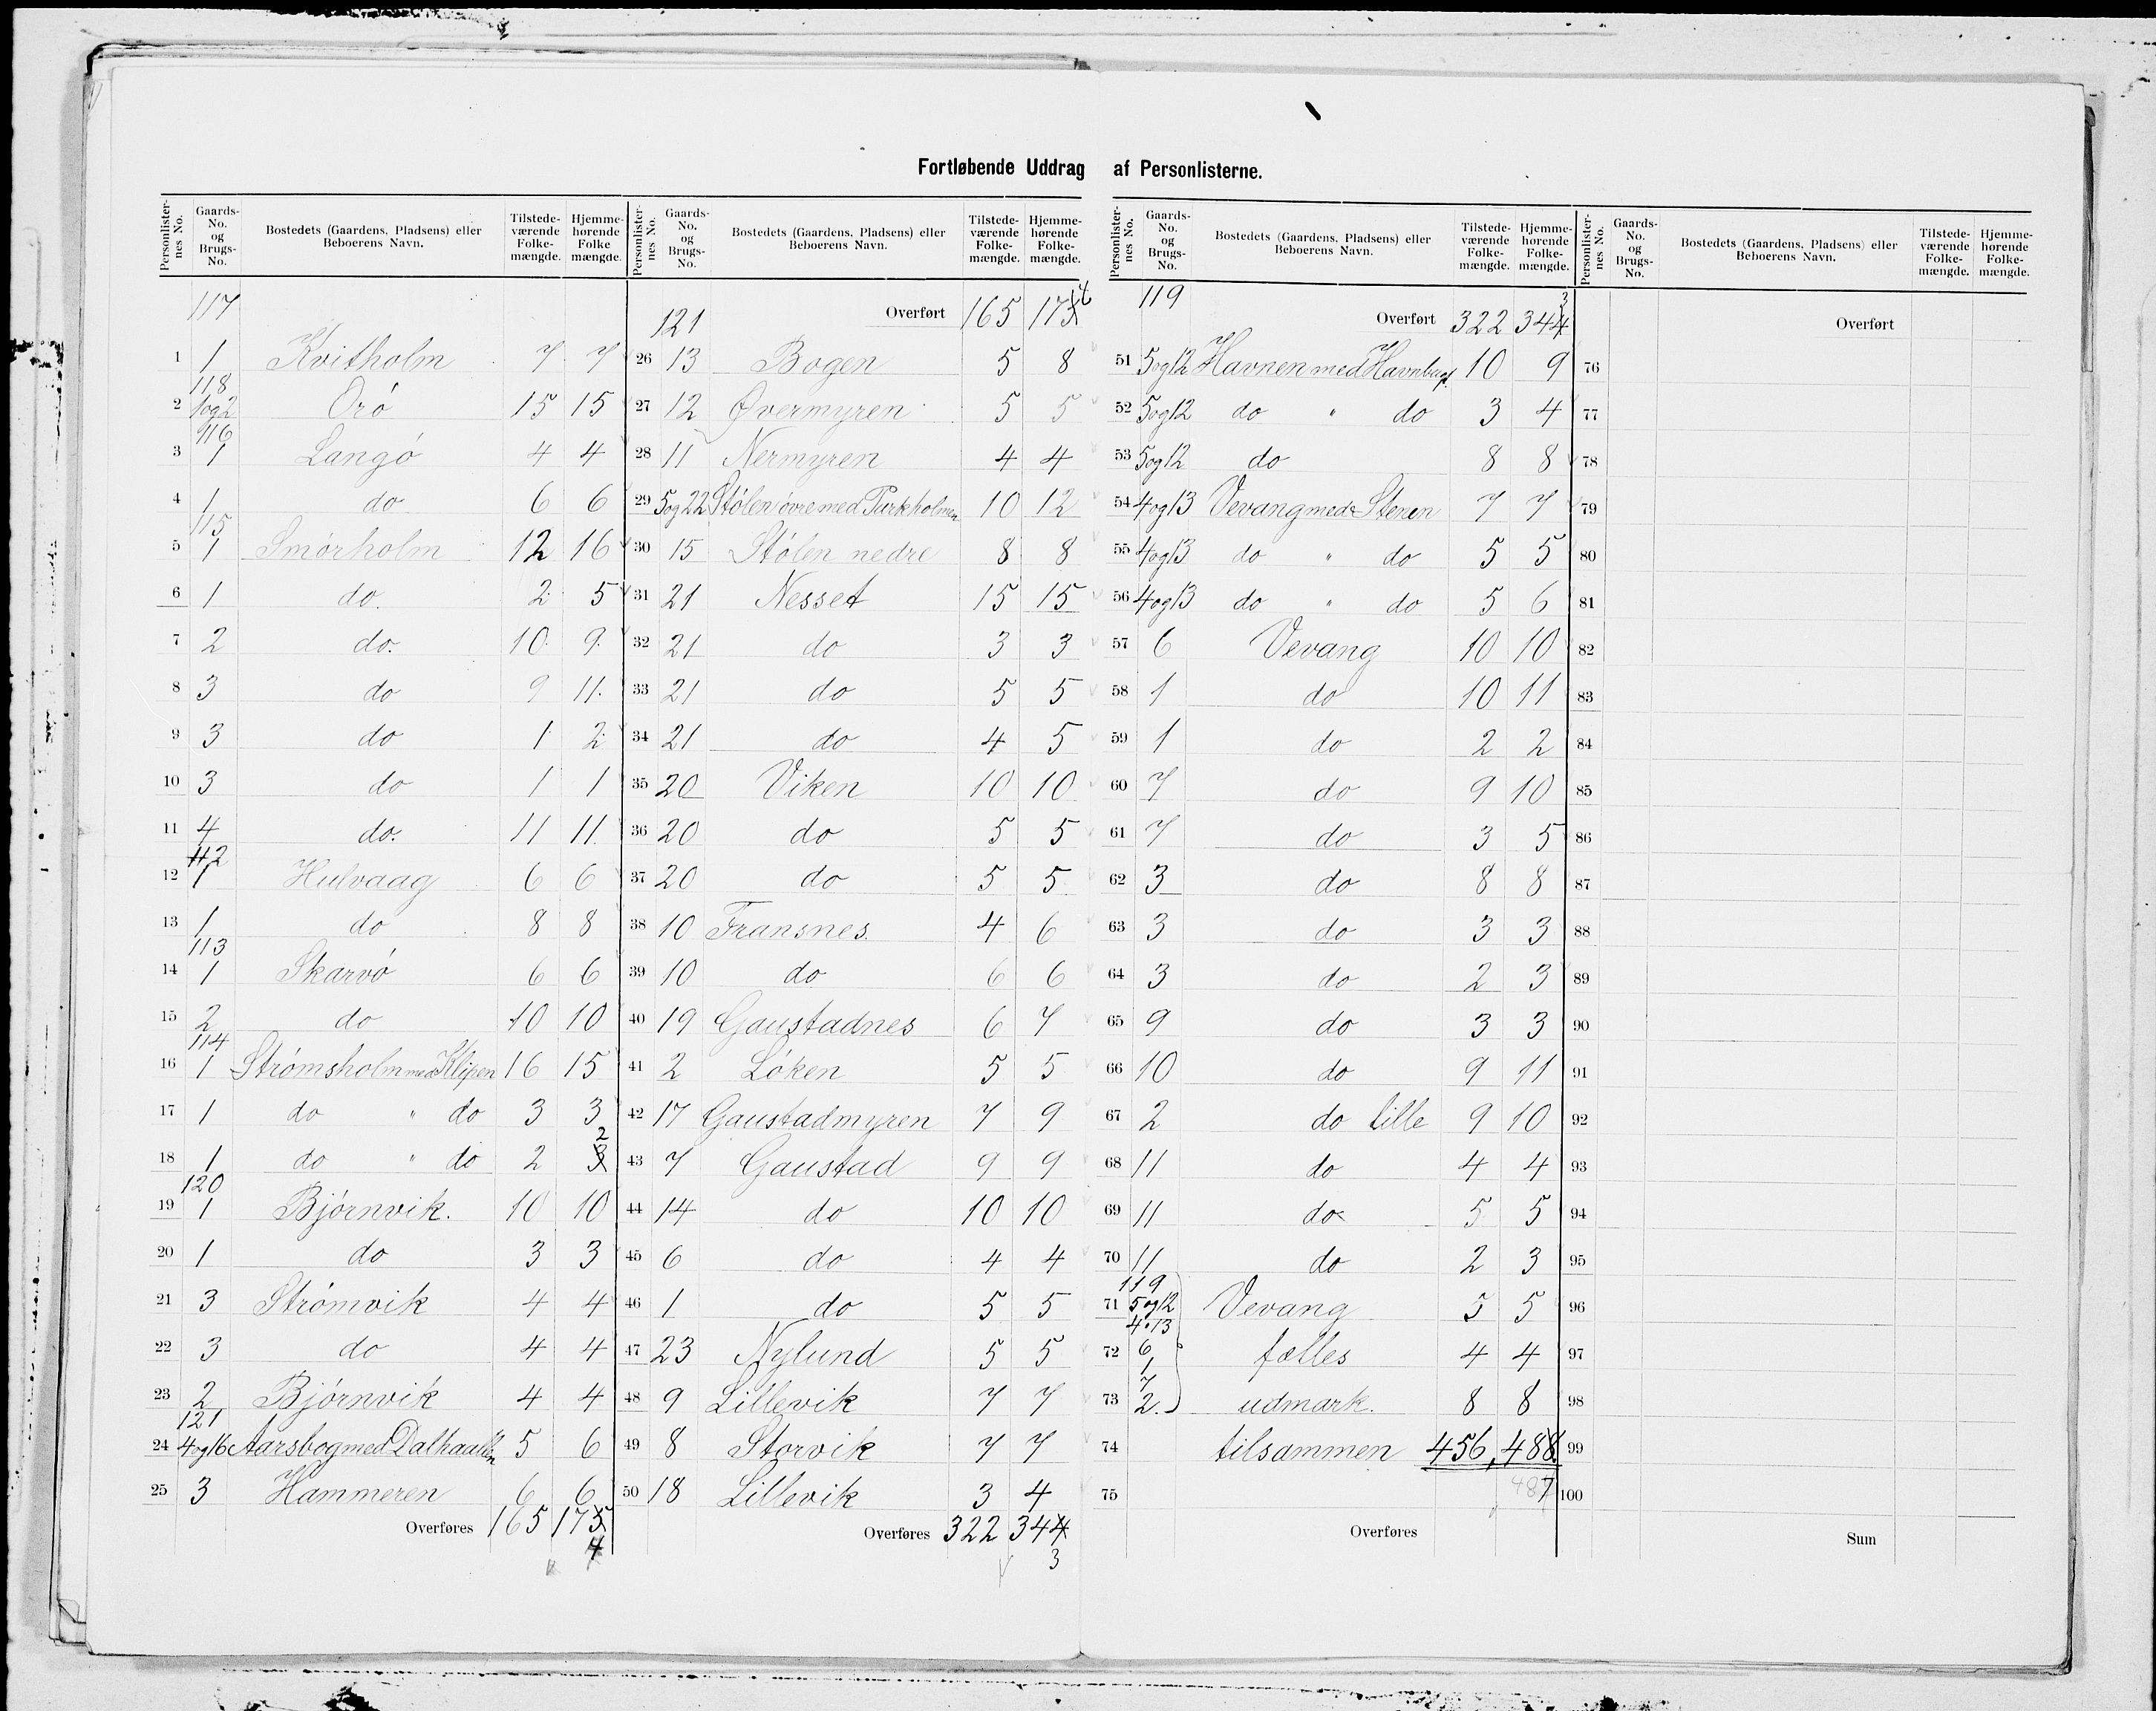 Fortløbende Uddrag af Personlisterne.
Personlisternes No. Gaards-No. og Brugs-No. Bostedets (Gaardens, Pladsens) eller Beboerens Navn. Tilstedeværende Folkemængde. Hjemmehørende Folkemængde.
117
1 1 Kvitholm 7 7
118
2 1og2 Orö 15 15
116
3 1 Langö 4 4
4 1 do 6 6
115
5 1 Smörholm 12 16
6 1 do. 2 5
7 2 do. 10 9
8 3 do 9 11
9 3 do 1 2
10 3 do 1 1
11 4 do. 11 11
112
12 1 Hulvaag 6 6
13 1 do 8 8
113
14 1 Skarvö 6 6
15 2 do 10 10
114
16 1 Strömsholm med Klipen 16 15
17 1 do " do 3 3
18 1 do " do 2 3 2
120
19 1 Björnvik. 10 10
20 1 do 3 3
21 3 Strömvik 4 4
22 3 do 4 4
23 2 Björnvik 4 4
121
24 4og16 Aarsbogmed Dalhaallen 5 6
25 3 Hammeren 6 6
Overføres 165 175
4
Personlisternes No. Gaards-No. og Brugs-No. Bostedets (Gaardens, Pladsens) eller Beboerens Navn. Tilstedeværende Folkemængde. Hjemmehørende Folkemængde.
121 Overført 165 175 4
26 13 Bogen 5 8
27 12 Øvermyren 5 5
28 11 Nermyren 4 4
29 5og22 Stölen övre med Purkholmen 10 12
30 15 Stölen nedre 8 8
31 21 Nesset 15 15
32 21 do 3 3
33 21 do 5 5
34 21 do 4 5
35 20 Viken 10 10
36 20 do 5 5
37 20 do 5 5
38 10 Fransnes. 4 6
39 10 do 6 6
40 19 Gaustadnes 6 7
41 2 Löken 5 5
42 17 Gaustadmyren 7 9
43 7 Gaustad 9 9
44 14 do 10 10
45 6 do 4 4
46 1 do 5 5
47 23 Nylund 5 5
48 9 Lillevik 7 7
49 8 Storvik 7 7
50 18 Lillevik 3 4
Overføres 322 344
3
Personlisternes No. Gaards-No. og Brugs-No. Bostedets (Gaardens, Pladsens) eller Beboerens Navn. Tilstedeværende Folkemængde. Hjemmehørende Folkemængde.
119 Overført 322 344 3
51 5og12 Havnen med 10 9
52 5og12 do " do 3 4
53 5og12 do 8 8
54 4og13 Vevang med Stenen 7 7
55 4og13 do " do 5 5
56 4og13 do " do 5 6
57 6 Vevang 10 10
58 1 do 10 11
59 1 do 2 2
60 7 do 9 10
61 7 do 3 5
62 3 do 8 8
63 3 do 3 3
64 3 do 2 3
65 9 do 3 3
66 10 do 9 11
67 2 do lille 9 10
68 11 do 4 4
69 11 do 5 5
70 11 do 2 3
119
71 5og12 Vevang 5 5
4 " 13
72 6 fælles 4 4
1
7
73 2. udmark. 8 8
74 tilsammen 456, 488.
75 487
Overføres
Personlisternes No. Gaards-No. og Brugs-No. Bostedets (Gaardens, Pladsens) eller Beboerens Navn. Tilstedeværende Folkemængde. Hjemmehørende Folkemængde.
Overført
76
77
78
79
80
81
82
83
84
85
86
87
88
89
90
91
92
93
94
95
96
97
98
99
100
Sum